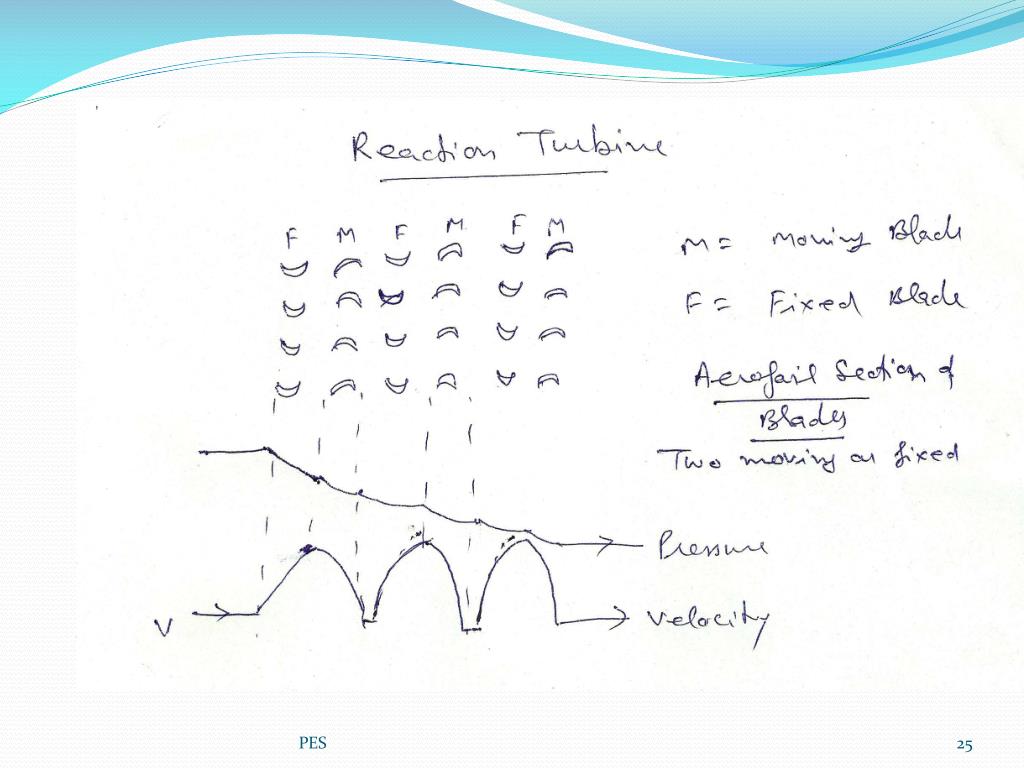 Reaction Turbine
F M F M F M
M = Moving Blade
F = Fixed Blade
Aerofoil Section of
Blades
Two moving or fixed
Pressure
V
Velocity
PES
25